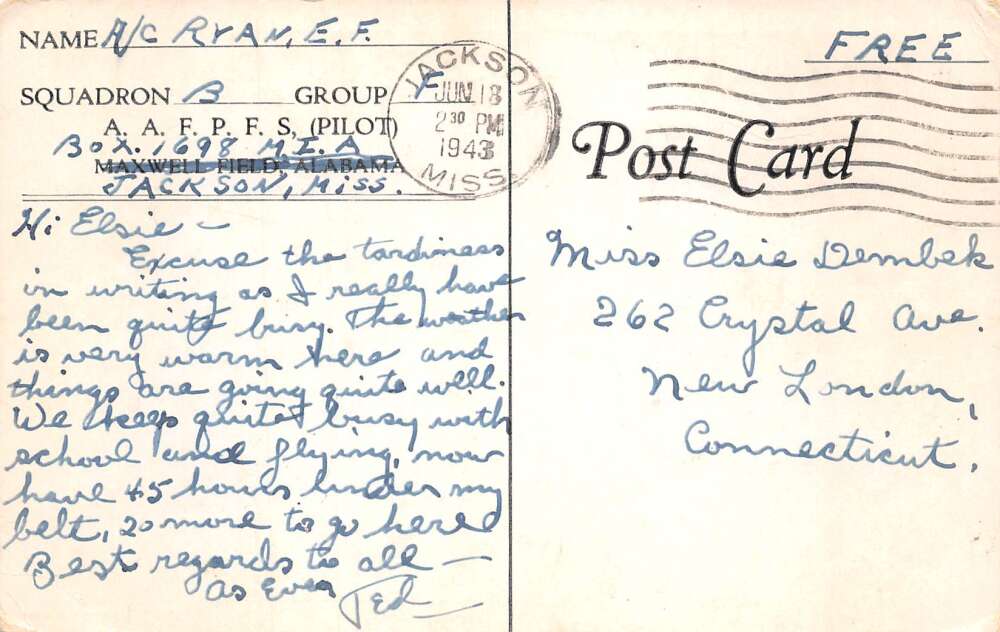 NAME A/C RYAN, E. F.
SQUADRON B GROUP F
A. A. F. P. F. S, (PILOT)
BOX. 1698 M.I.A
MAXWELL FIELD, ALABAMA
JACKSON, MISS.
JACKSON
JUN 18
2 30 PM
1943
MISS
FREE
Post Card
Hi Elsie —
Excuse the tardiness
in writing as I really have
been quite busy. The weather
is very warm here and
things are going quite well.
We keep quite busy with
school and flying, now
have 45 hours under my
belt, 20 more to go here
Best regards to all —
As Ever
Ted
Miss Elsie Dembek
262 Crystal Ave.
New London,
Connecticut.